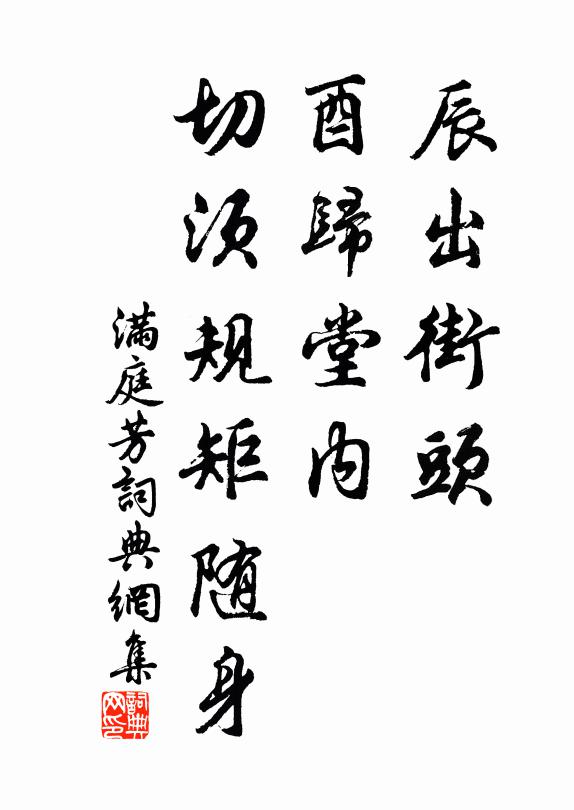 辰出街頭
酉歸堂内
切須規矩随身
滿庭芳詞典網集
詞典
网印